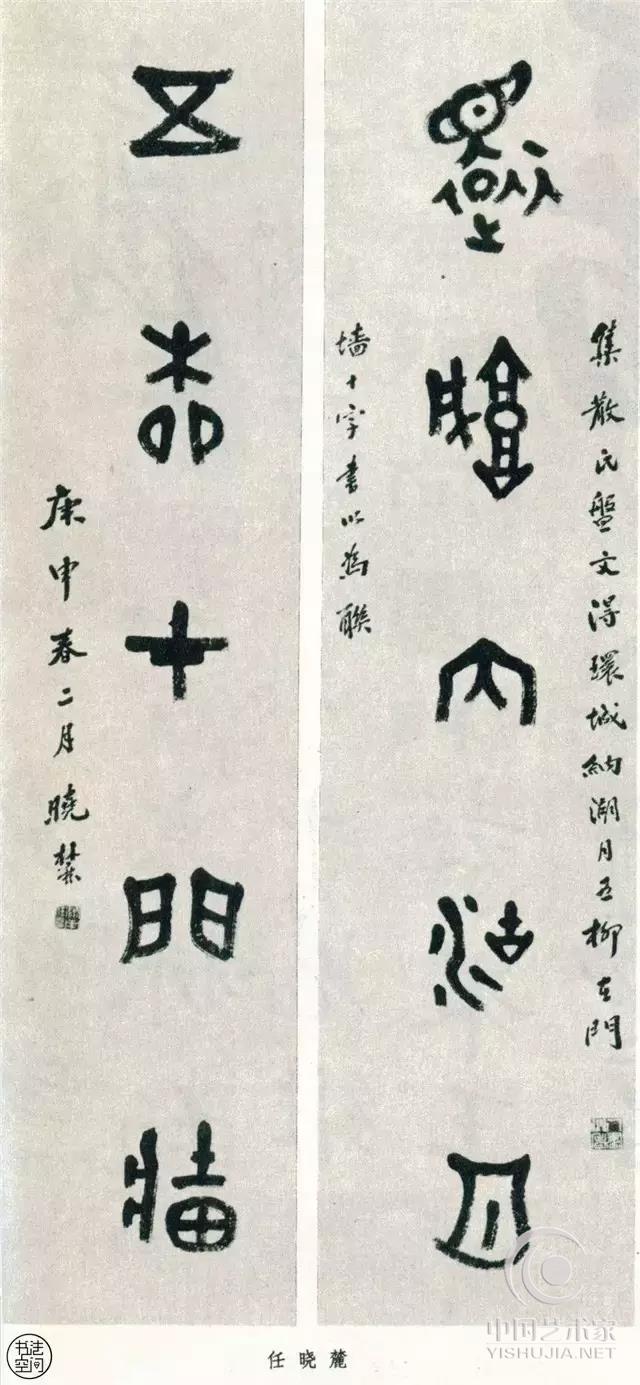 集散氏盤文得環城納湖月五柳在門
環城內湖月
墙十字書以為聯
五柳在門牆
庚申春二月曉麓
任晓麓
书法空间
中国艺术家
YISHUJIA.NET